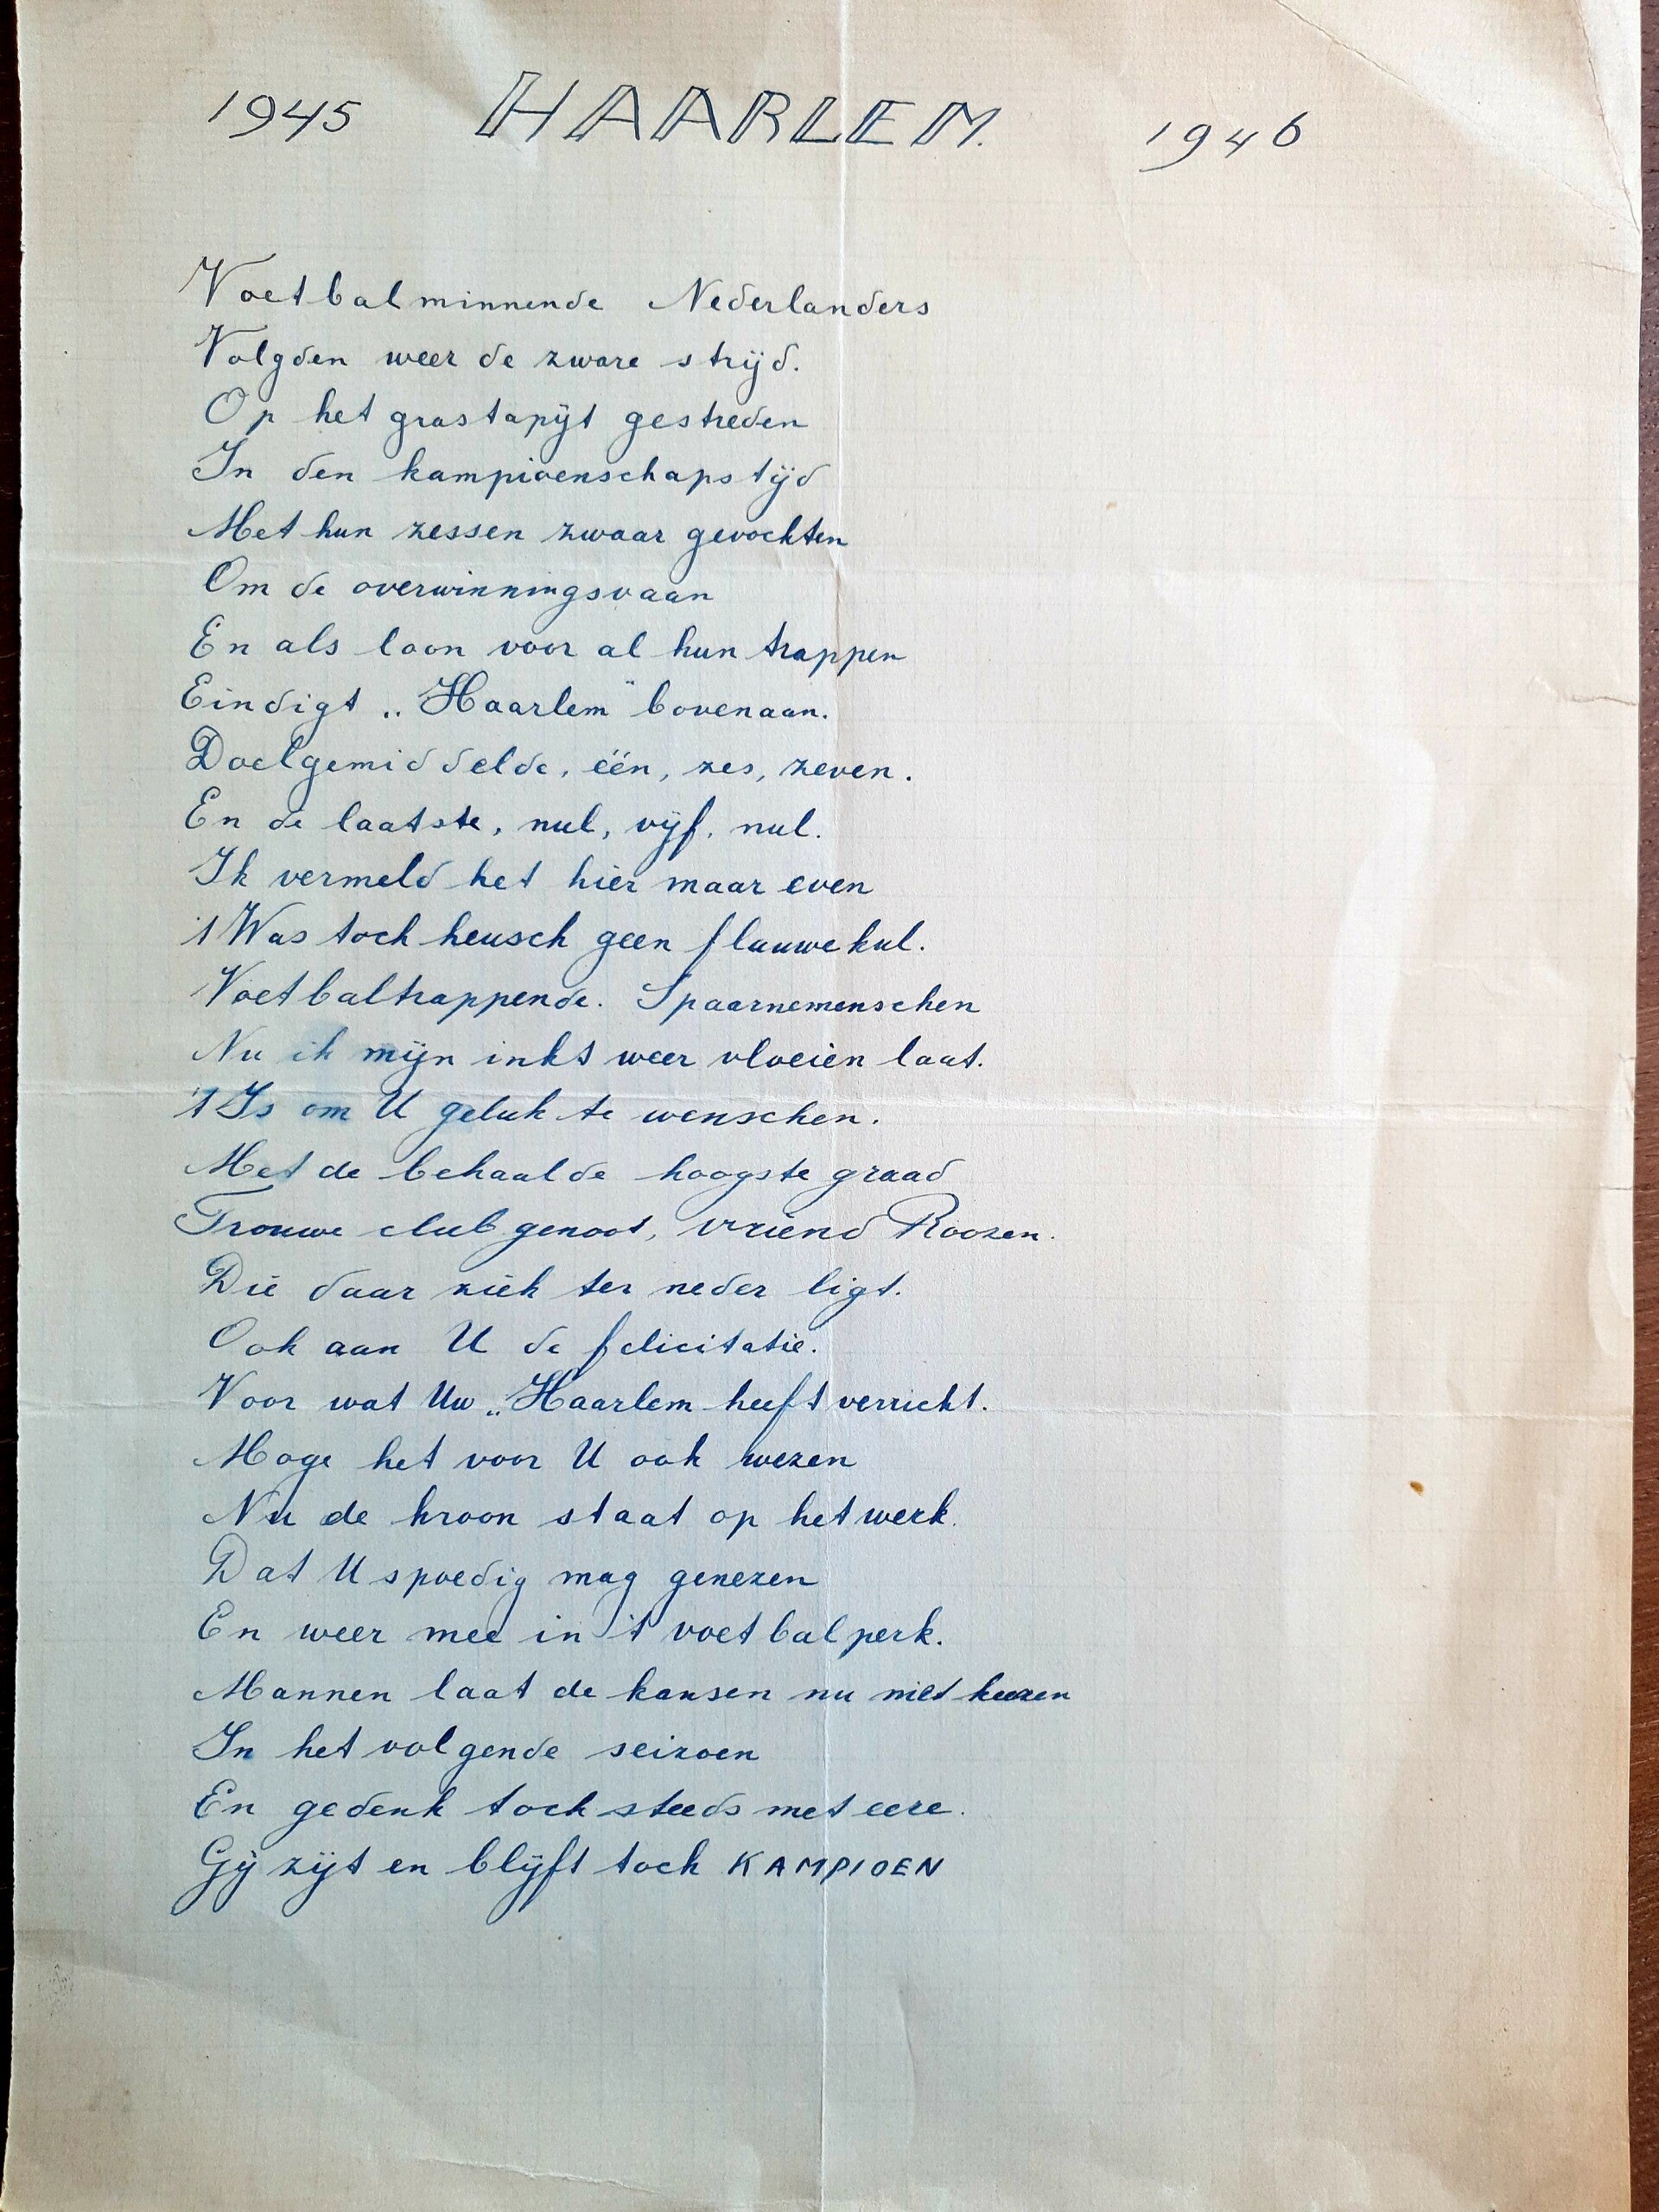 1945 HAARLEM. 1946
Voetbalminnende Nederlanders
Volgden weer de zware strijd.
Op het grastapijt gestreden
In den kampioenschapstijd
Met hun zessen zwaar gevochten
Om de overwinningsvaan
En als loon voor al hun trappen
Eindigt „Haarlem" bovenaan.
Doelgemiddelde, één, zes, zeven.
En de laatste, nul, vijf, nul.
Ik vermeld het hier maar even
't Was toch heusch geen flauwekul.
Voetbaltrappende. Spaarnemenschen
Nu ik mijn inkt weer vloeien laat.
't Is om U geluk te wenschen.
Met de behaalde hoogste graad
Trouwe clubgenoot, vriend Roozen.
Die daar ziek ter neder ligt.
Ook aan U de felicitatie.
Voor wat Uw „Haarlem heeft verricht.
Moge het voor U ook wezen
Nu de kroon staat op het werk.
Dat U spoedig mag genezen
En weer mee in 't voetbalperk.
Mannen laat de kansen nu niet keeren
In het volgende seizoen
En gedenk toch steeds met eere.
Gij zijt en blijft toch KAMPIOEN